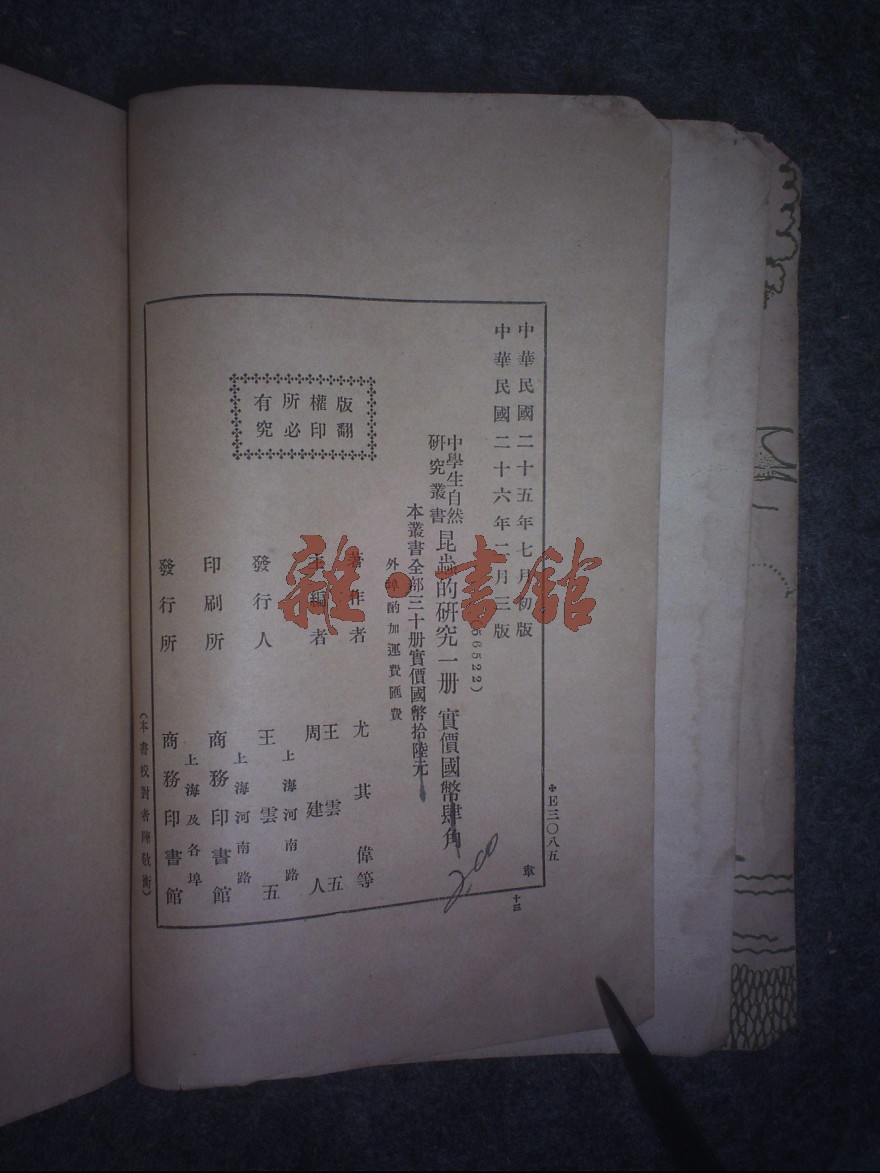 中華民國二十五年七月初版
中華民國二十六年二月三版
E三〇八五
十三
56522)
中學生自然
研究叢書
昆蟲的研究一册
實價國幣肆角
200
本叢書全部三十册實價國幣拾陸元
外埠酌加運費匯費
版權所有
翻印必究
著作者 尤其偉等
主編者 王雲五
周建人
上海河南路
發行人 王雲五
上海河南路
印刷所 商務印書館
上海及各埠
發行所 商務印書館
(本書校對者陳敬衡)
雜·書館